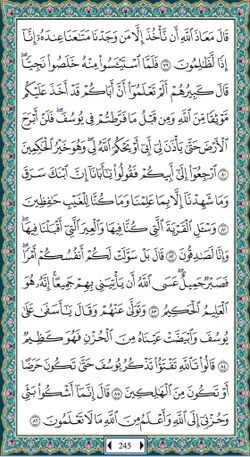 قَالَ مَعَاذَ ٱللَّهِ أَن نَّأْخُذَ إِلَّا مَن وَجَدْنَا مَتَـٰعَنَا عِندَهُۥٓ إِنَّآ
إِذًا لَّظَـٰلِمُونَ ٧٩ فَلَمَّا ٱسْتَيْـَٔسُوا۟ مِنْهُ خَلَصُوا۟ نَجِيًّا ۖ
قَالَ كَبِيرُهُمْ أَلَمْ تَعْلَمُوٓا۟ أَنَّ أَبَاكُمْ قَدْ أَخَذَ عَلَيْكُم
مَّوْثِقًا مِّنَ ٱللَّهِ وَمِن قَبْلُ مَا فَرَّطتُمْ فِى يُوسُفَ ۖ فَلَنْ أَبْرَحَ
ٱلْأَرْضَ حَتَّىٰ يَأْذَنَ لِىٓ أَبِىٓ أَوْ يَحْكُمَ ٱللَّهُ لِى ۖ وَهُوَ خَيْرُ ٱلْحَـٰكِمِينَ
٨٠ ٱرْجِعُوٓا۟ إِلَىٰٓ أَبِيكُمْ فَقُولُوا۟ يَـٰٓأَبَانَآ إِنَّ ٱبْنَكَ سَرَقَ
وَمَا شَهِدْنَآ إِلَّا بِمَا عَلِمْنَا وَمَا كُنَّا لِلْغَيْبِ حَـٰفِظِينَ
٨١ وَسْـَٔلِ ٱلْقَرْيَةَ ٱلَّتِى كُنَّا فِيهَا وَٱلْعِيرَ ٱلَّتِىٓ أَقْبَلْنَا فِيهَا ۖ
وَإِنَّا لَصَـٰدِقُونَ ٨٢ قَالَ بَلْ سَوَّلَتْ لَكُمْ أَنفُسُكُمْ أَمْرًا ۖ
فَصَبْرٌ جَمِيلٌ ۖ عَسَى ٱللَّهُ أَن يَأْتِيَنِى بِهِمْ جَمِيعًا ۚ إِنَّهُۥ هُوَ
ٱلْعَلِيمُ ٱلْحَكِيمُ ٨٣ وَتَوَلَّىٰ عَنْهُمْ وَقَالَ يَـٰٓأَسَفَىٰ عَلَىٰ
يُوسُفَ وَٱبْيَضَّتْ عَيْنَاهُ مِنَ ٱلْحُزْنِ فَهُوَ كَظِيمٌ
٨٤ قَالُوا۟ تَٱللَّهِ تَفْتَؤُا۟ تَذْكُرُ يُوسُفَ حَتَّىٰ تَكُونَ حَرَضًا
أَوْ تَكُونَ مِنَ ٱلْهَـٰلِكِينَ ٨٥ قَالَ إِنَّمَآ أَشْكُوا۟ بَثِّى
وَحُزْنِىٓ إِلَى ٱللَّهِ وَأَعْلَمُ مِنَ ٱللَّهِ مَا لَا تَعْلَمُونَ ٨٦
245